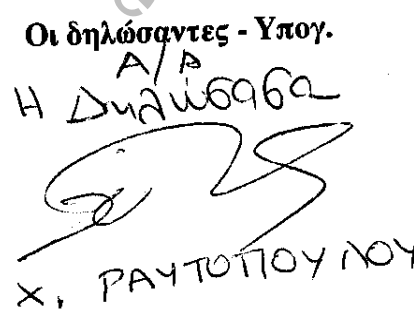 Οι δηλώσαντες - Υπογ.
Α/Α
Η Δηλώσασα
Χ. ΡΑΥΤΟΠΟΥΛΟΥ